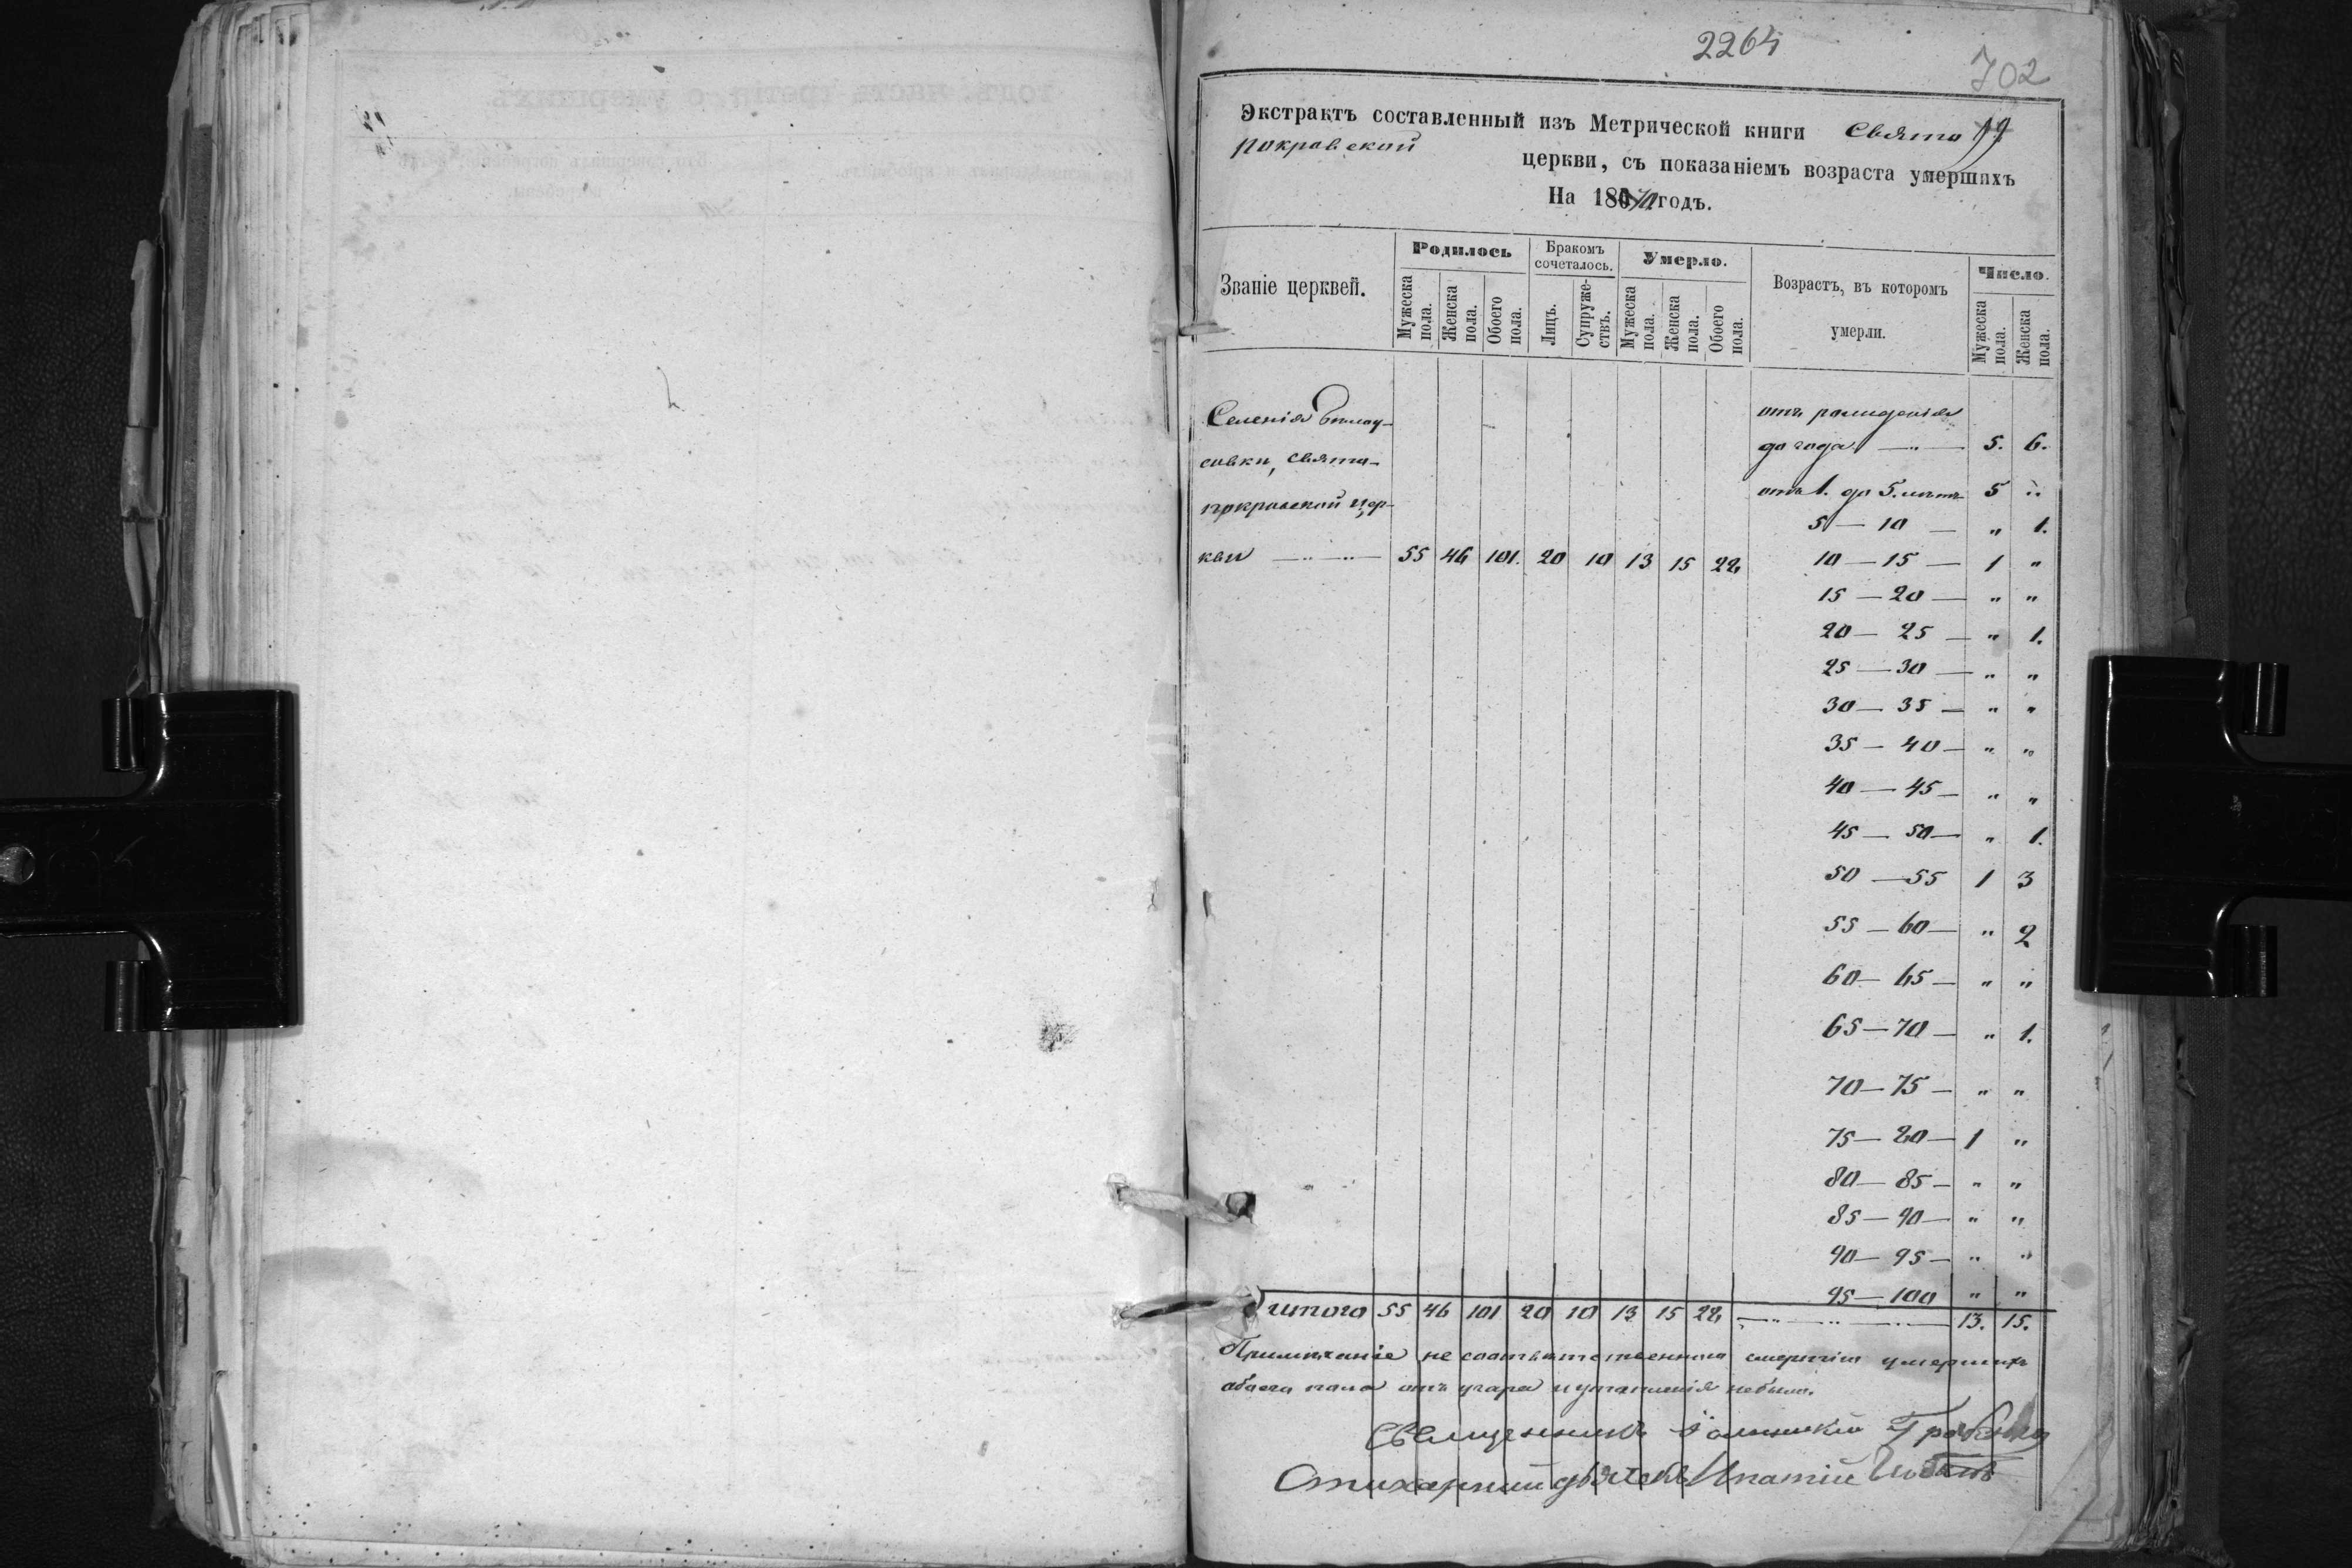 2264
702
Экстрактъ составленный изъ Метрической книги Свято
покровской
церкви, съ показаніемъ возраста умершихъ
На 1870 годъ.
Званіе церквей.
Родилось
Бракомъ сочеталось.
Умерло.
Возрастъ, въ которомъ умерли.
Число.
Мужеска пола. Женска пола. Обоего пола. Лицъ. Супружествъ. Мужеска пола. Женска пола. Обоего пола. Мужеска пола. Женска пола.
Селенія
совки, Свято-
покровской цер-
кви 55 46 101. 20 10 13 15 28
отъ рожденія
до года — „ — 5. 6.
отъ 1. до 5. лѣтъ 5 „
5 — 10 — „ 1.
10 — 15 — 1 „
15 — 20 — „ „
20 — 25 — „ 1.
25 — 30 — „ „
30 — 35 — „ „
35 — 40 — „ „
40 — 45 — „ „
45 — 50 — „ 1.
50 — 55 1 3
55 — 60 — „ 2
60 — 65 — „ „
65 — 70 — „ 1.
70 — 75 — „ „
75 — 80 — 1 „
80 — 85 — „ „
85 — 90 — „ „
90 — 95 — „ „
95 — 100 „ „
Итого 55 46 101 20 10 13 15 28 13. 15.
Примѣчаніе не соотвѣтственного смертію умершихъ
обоего пола отъ угара и утопленія небыло.
Священникъ
Стихарный дьячекъ Ипатій